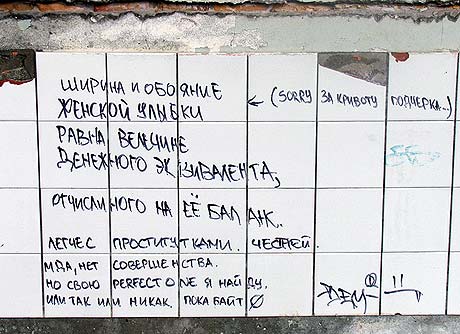 ШИРИНА И ОБОЯНИЕ
ЖЕНСКОЙ УЛЫБКИ
← (SORRY ЗА КРИВОТУ ПОДЧЕРКА...)
РАВНА ВЕЛЕЧИНЕ
ДЕНЕЖНОГО ЭКВИВАЛЕНТА,
ОТЧИСЛИНОГО НА ЕЁ БАЛАНК..
ЛЕГЧЕ С ПРОСТИТУТКАМИ. ЧЕСТНЕЙ.
МДА, НЕТ СОВЕРШЕНСТВА.
НО СВОЮ PERFECT ONE Я НАЙДУ.
ИЛИ ТАК ИЛИ НИКАК. ПОКА БАЙТ